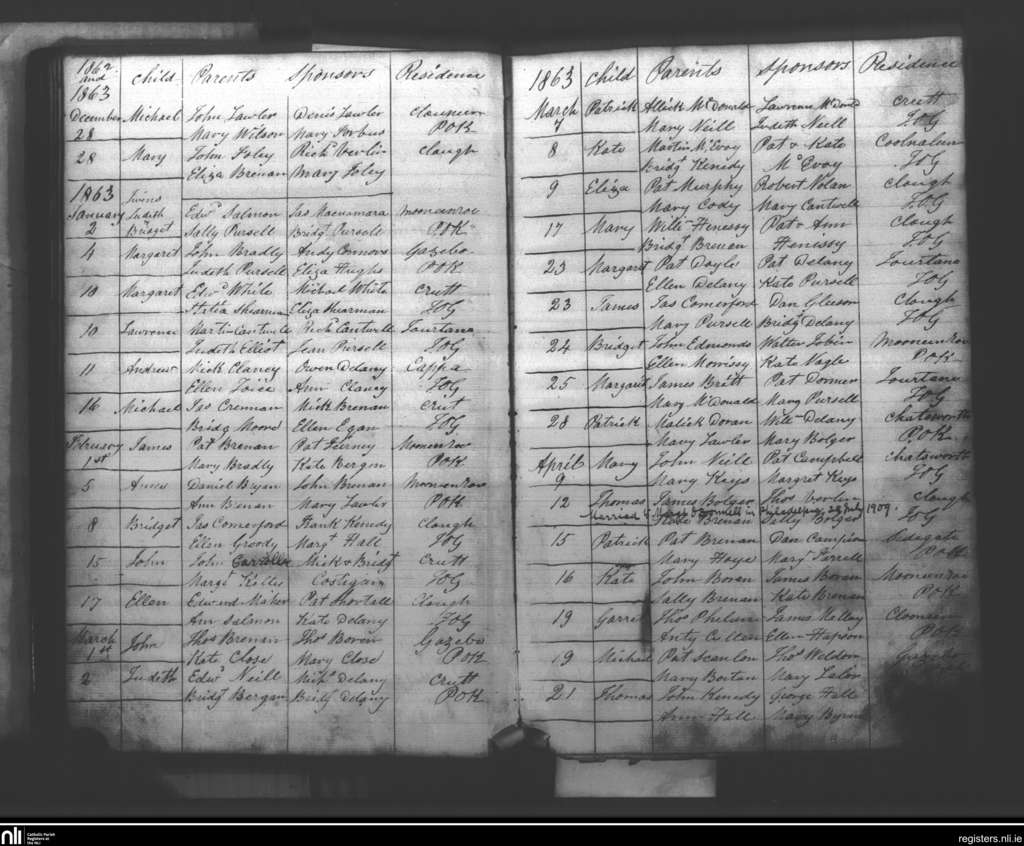 1862 and 1863 Child Parents Sponsors Residence
December Michael John Lawler Denis Lawler Clouneen
28 Mary Wilson Mary Forbus POK
28 Mary John Foley Richd Verlin Clough
Eliza Brenan Mary Foley
1863 Twins
January Judith Edwd Salmon Jas Macnamara Mooneenroe
2 Bridget Sally Pursell Bridgt Pursell POK
4 Margarit John Bradly Andy Connors Gazebo
Judith Pursell Eliza Hughs POK
10 Margarit Edwd While Michael White Crutt
Statia Shearman Eliza Hearman JOG
10 Lawrence Martin Cantwell Richd Cantwell Tourtana
Judith Elliot Jean Pursell JOG
11 Andrew Mick Clancy Owen Delany Cappa
Ellen Joice Ann Clancy JOG
16 Michael Jas Crennan Mick Brenan Crut
Bridg Moore Ellen Egan JOG
Febuary James Pat Brenan Pat Tierney Moonenroe
1st Mary Bradly Kate Bergin POK
5 Anne Daniel Bryan John Brenan Mooneenroe
Ann Brenan Mary Lawler POK
8 Bridget Jas Comerford Frank Kenedy Clough
Ellen Groody Margt Hall JOG
15 John John Carroll Mick & Bridgt Crutt
Margt Kelles Costigan JOG
17 Ellen Edward Maher Pat Shortall Clough
Ann Salmon Kate Delany JOG
March John Thos Brenan Thos Boran Gazebo
1st Kate Close Mary Close POK
2 Judith Edwd Neill Michl Delany Crutt
Bridgt Bergan Bridgt Delany POK
1863 Child Parents Sponsors Residence
March Patrick Allick McDonald Lawrence McDonld Crutt
7 Mary Neill Judith Neill JOG
8 Kate Martin McEvoy Pat & Kate Coolnaleen
Bridgt Kenedy McEvoy JOG
9 Eliza Pat Murphy Robert Nolan Clough
Mary Cody Mary Cantwell JOG
17 Mary Willm Henessy Pat & Ann Clough
Bridgt Brenan Henissy JOG
23 Margaret Pat Doyle Pat Delany Tourtana
Ellen Delany Kate Pursell JOG
23 James Jas Comerford Dan Gleeson Clough
Mary Pursell Bridgt Delany JOG
24 Bridget John Edmonds Walter Tobin Mooneenroe
Ellen Morrissy Kate Nagle POK
25 Margarit James Britt Pat Downer Tourtana
Mary McDonald Mary Pursell JOG
28 Patrick Malick Doran Willm Delany Chatsworth
Mary Lawler Mary Bolger POK
April Mary John Neill Pat Campbell Chatsworth
9 Mary Keys Margret Keys JOG
12 Thomas James Bolger Thos Verlin Clough
Married to O'Donnell in Philadelphia, 28 July 1909.
Brenan Sally Bolger JOG
15 Patrick Pat Brenan Dan Campion
Mary Hoye Mary Farrell POK
16 Kate John Boran James Boran Mooneenroe
Sally Brenan Kate Brenan POK
19 Garret Thos Phelan James Mallay Clouneen
Anty Cullen Ellen Hapson POK
19 Michael Pat Scanlon Thos Weldon Gazebo
Mary Bortan Mary Lalor
21 Thomas John Kenedy George Hall
Ann Hall Mary Byrne
nli Catholic Parish Registers at the NLI
registers.nli.ie